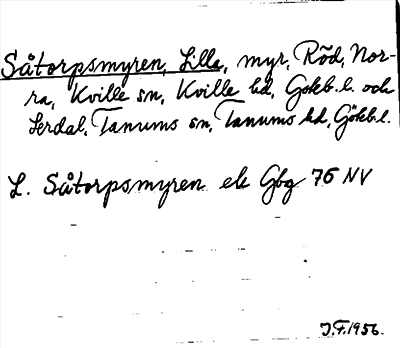 Såtorpsmyren, Lilla, myr, Röd, Nor-
ra, Kville sn, Kville hd, Gokb. l. och
Lerdal, Tanums sn, Tanums hd, Gökb. l.
L. Såtorpsmyren ek Gbg 76 NV
J.F. 1956.